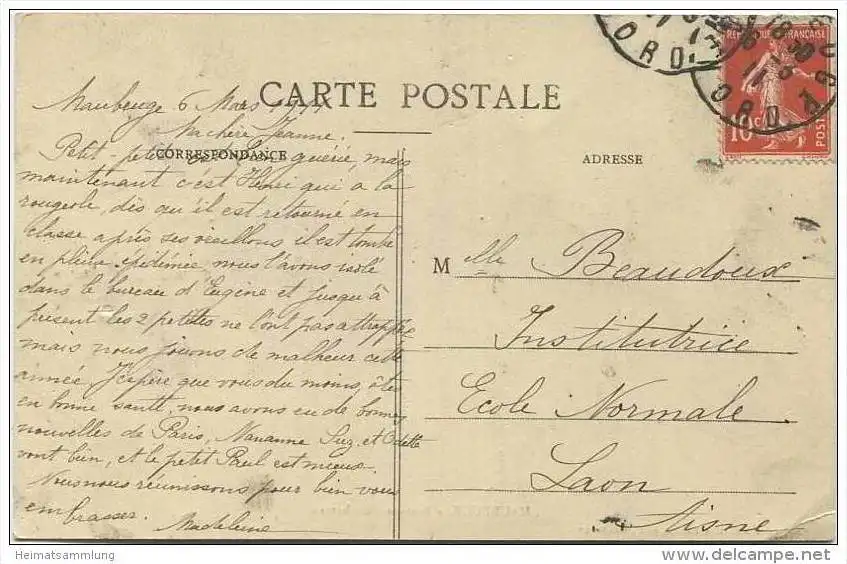 CARTE POSTALE
Maubeuge 6 Mars 1911
Ma chère Jeanne.
CORRESPONDANCE
ADRESSE
Petit-père est guérie, mais
maintenant c'est Henri qui a la
rougeole, dès qu'il est retourné en
classe après ses oreillons il est tombé
en pleine épidémie nous l'avons isolé
dans le bureau d'Eugène et jusqu'à
présent les 2 petites ne l'ont pas attrappée
mais nous jouons de malheur cette
année. J'espère que vous du moins, êtes
en bonne santé, nous avons eu de bonnes
nouvelles de Paris, Suz. et Odette
vont bien, et le petit Paul est mieux.
Nous nous réunissons pour bien vous
embrasser.
Madeleine
Mlle Beaudoux
Institutrice
Ecole Normale
Laon
Aisne
REPUBLIQUE FRANÇAISE
10c
POSTES
NORD
Heimatsammlung
delcampe.net